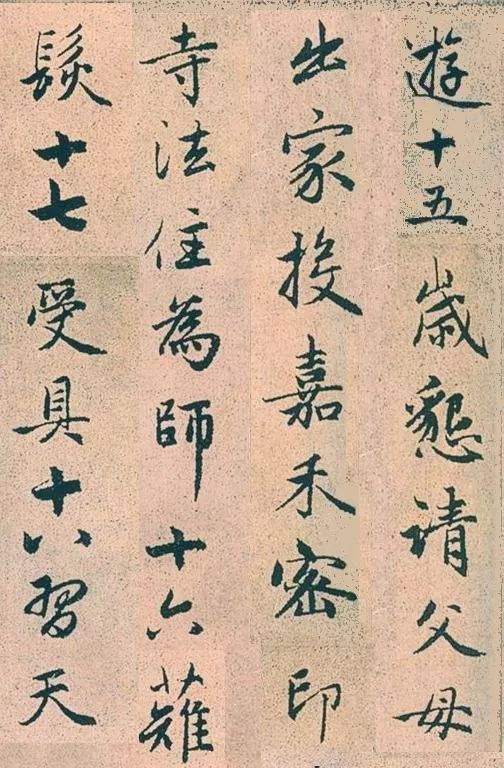 遊十五歲懇請父母
出家投嘉禾密印
寺法住為師十六薙
髮十七受具十八習天